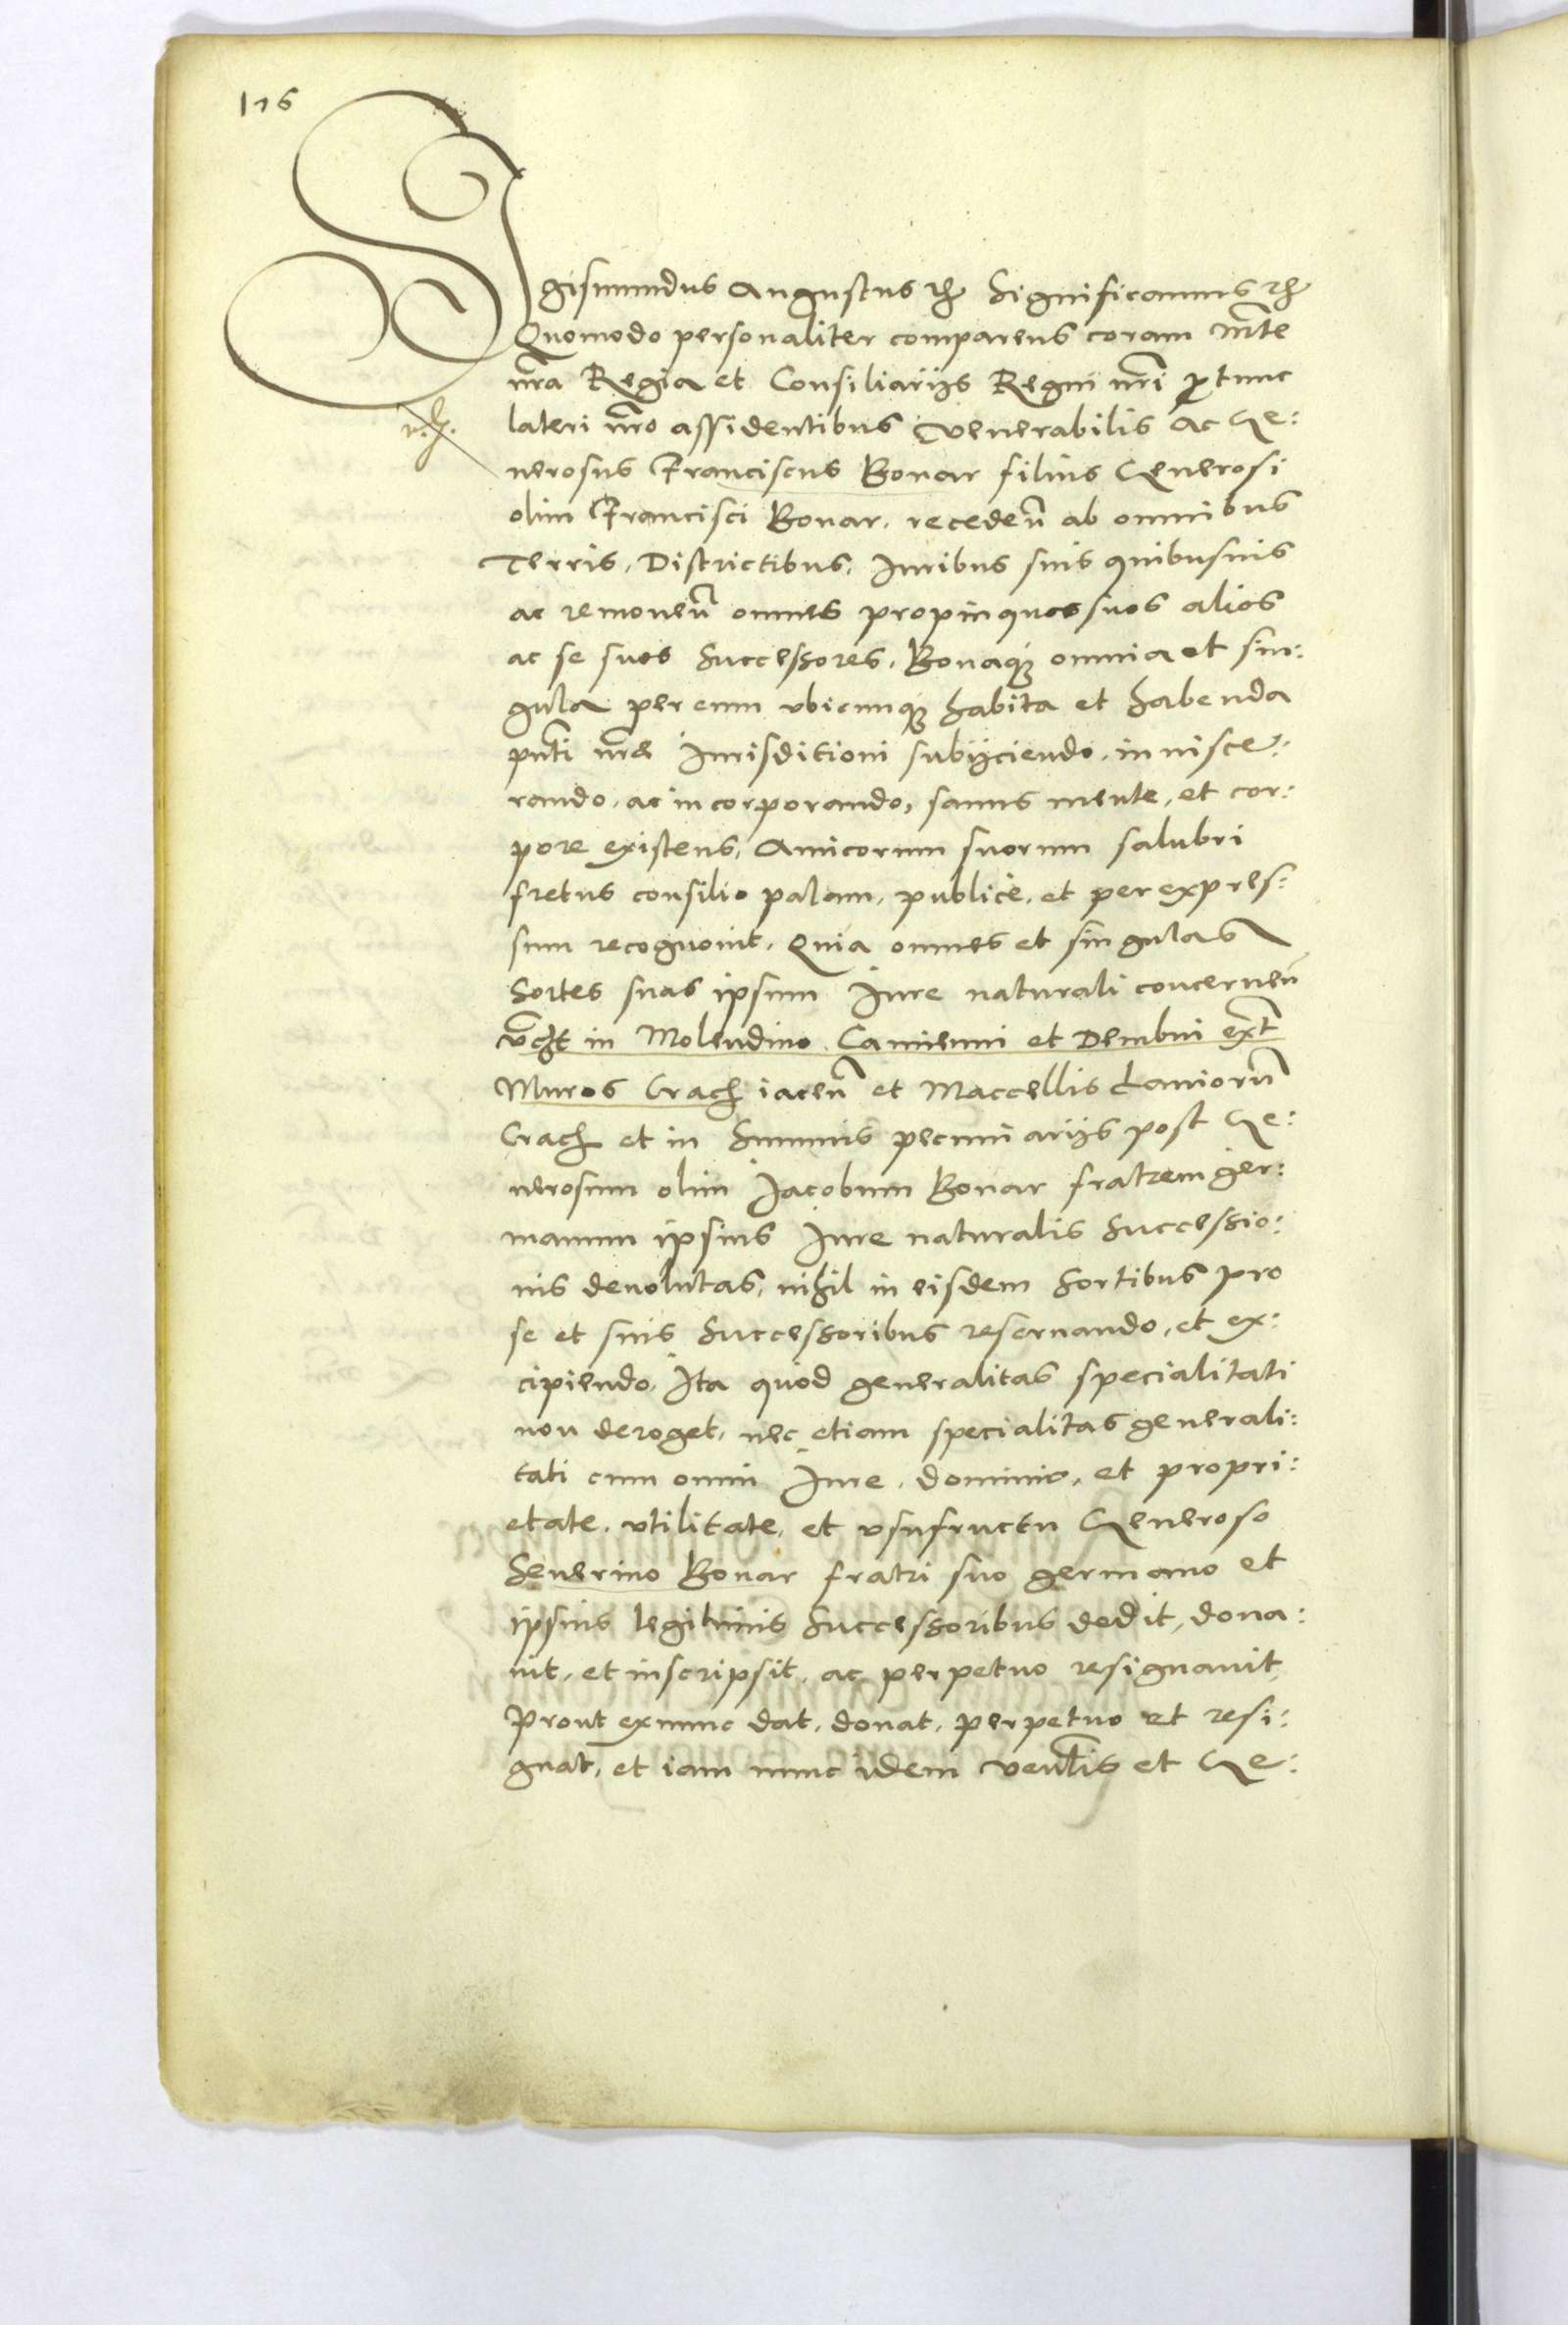 176
Sigismundus Augustus rc Significamus rc
Quomodo personaliter comparens coram Mte
nra Regia et Consiliarijs Regni nri p tunc
lateri nro assidentibus Venerabilis ac Ge:
nerosus Franciscus Bonar filius Generosi
olim Francisci Bonar, receden ab omnibus
Terris, Districtibus, Iuribus suis quibusuis
ac remouen omnes propinquos suos alios
ac se suos Successores, Bonaq omnia et sin:
gula per eum vbicunq habita et habenda
pnti nre Iurisditioni subijciendo, inuisce:
rando, ac incorporando, sanus mente, et cor:
pore existens, Amicorum suorum salubri
fretus consilio palam, publice, et per expres:
sum recognouit, Quia omnes et singulas
Sortes suas ipsum Iure naturali concernen
vcht in Molendino Camienni et Dembni ext
Muros Crach iacen et Maccellis Laniorum
Crach et in Summis pecuniarijs post Ge:
nerosum olim Jacobum Bonar fratrem ger:
manum ipsius Iure naturalis Successio:
nis deuolutas, nihil in eisdem Sortibus pro
se et suis Successoribus reseruando, et ex:
cipiendo, Ita quod generalitas specialitati
non deroget, nec etiam specialitas generali:
tati cum omni Iure, dominio, et propri:
etate, vtilitate, et vsufructu Generoso
Seuerino Bonar fratri suo germano et
ipsius legitimis Successoribus dedit, dona:
uit, et inscripsit, ac perpetuo resignauit
Prout ex nunc dat, donat, perpetuo et resi:
gnat, et iam nunc idem venlis et Ge: